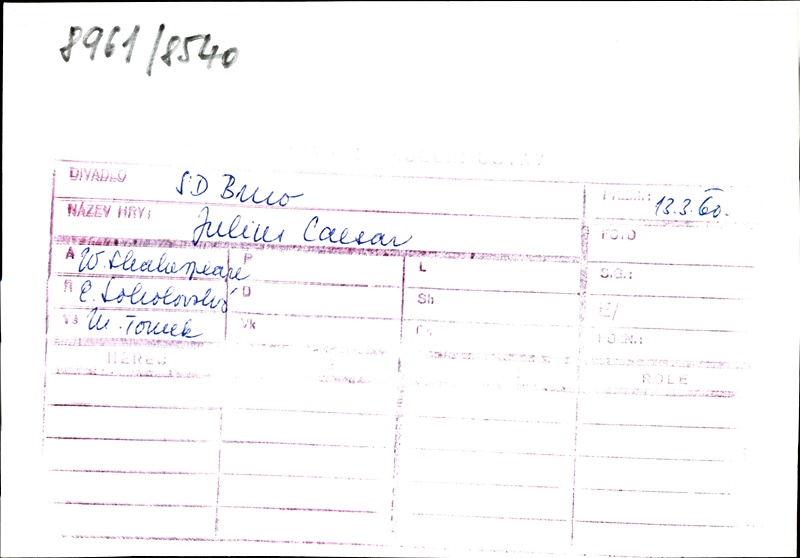 8961/8540
DIVADLO SD Brno
PREM.: 13.3.60.
NÁZEV HRY: Julius Caesar
FOTO
A W. Shakespeare P L S.G.:
R E. Sokolovský D Sh
Vs M. Tomek Vk
HEREC ROLE